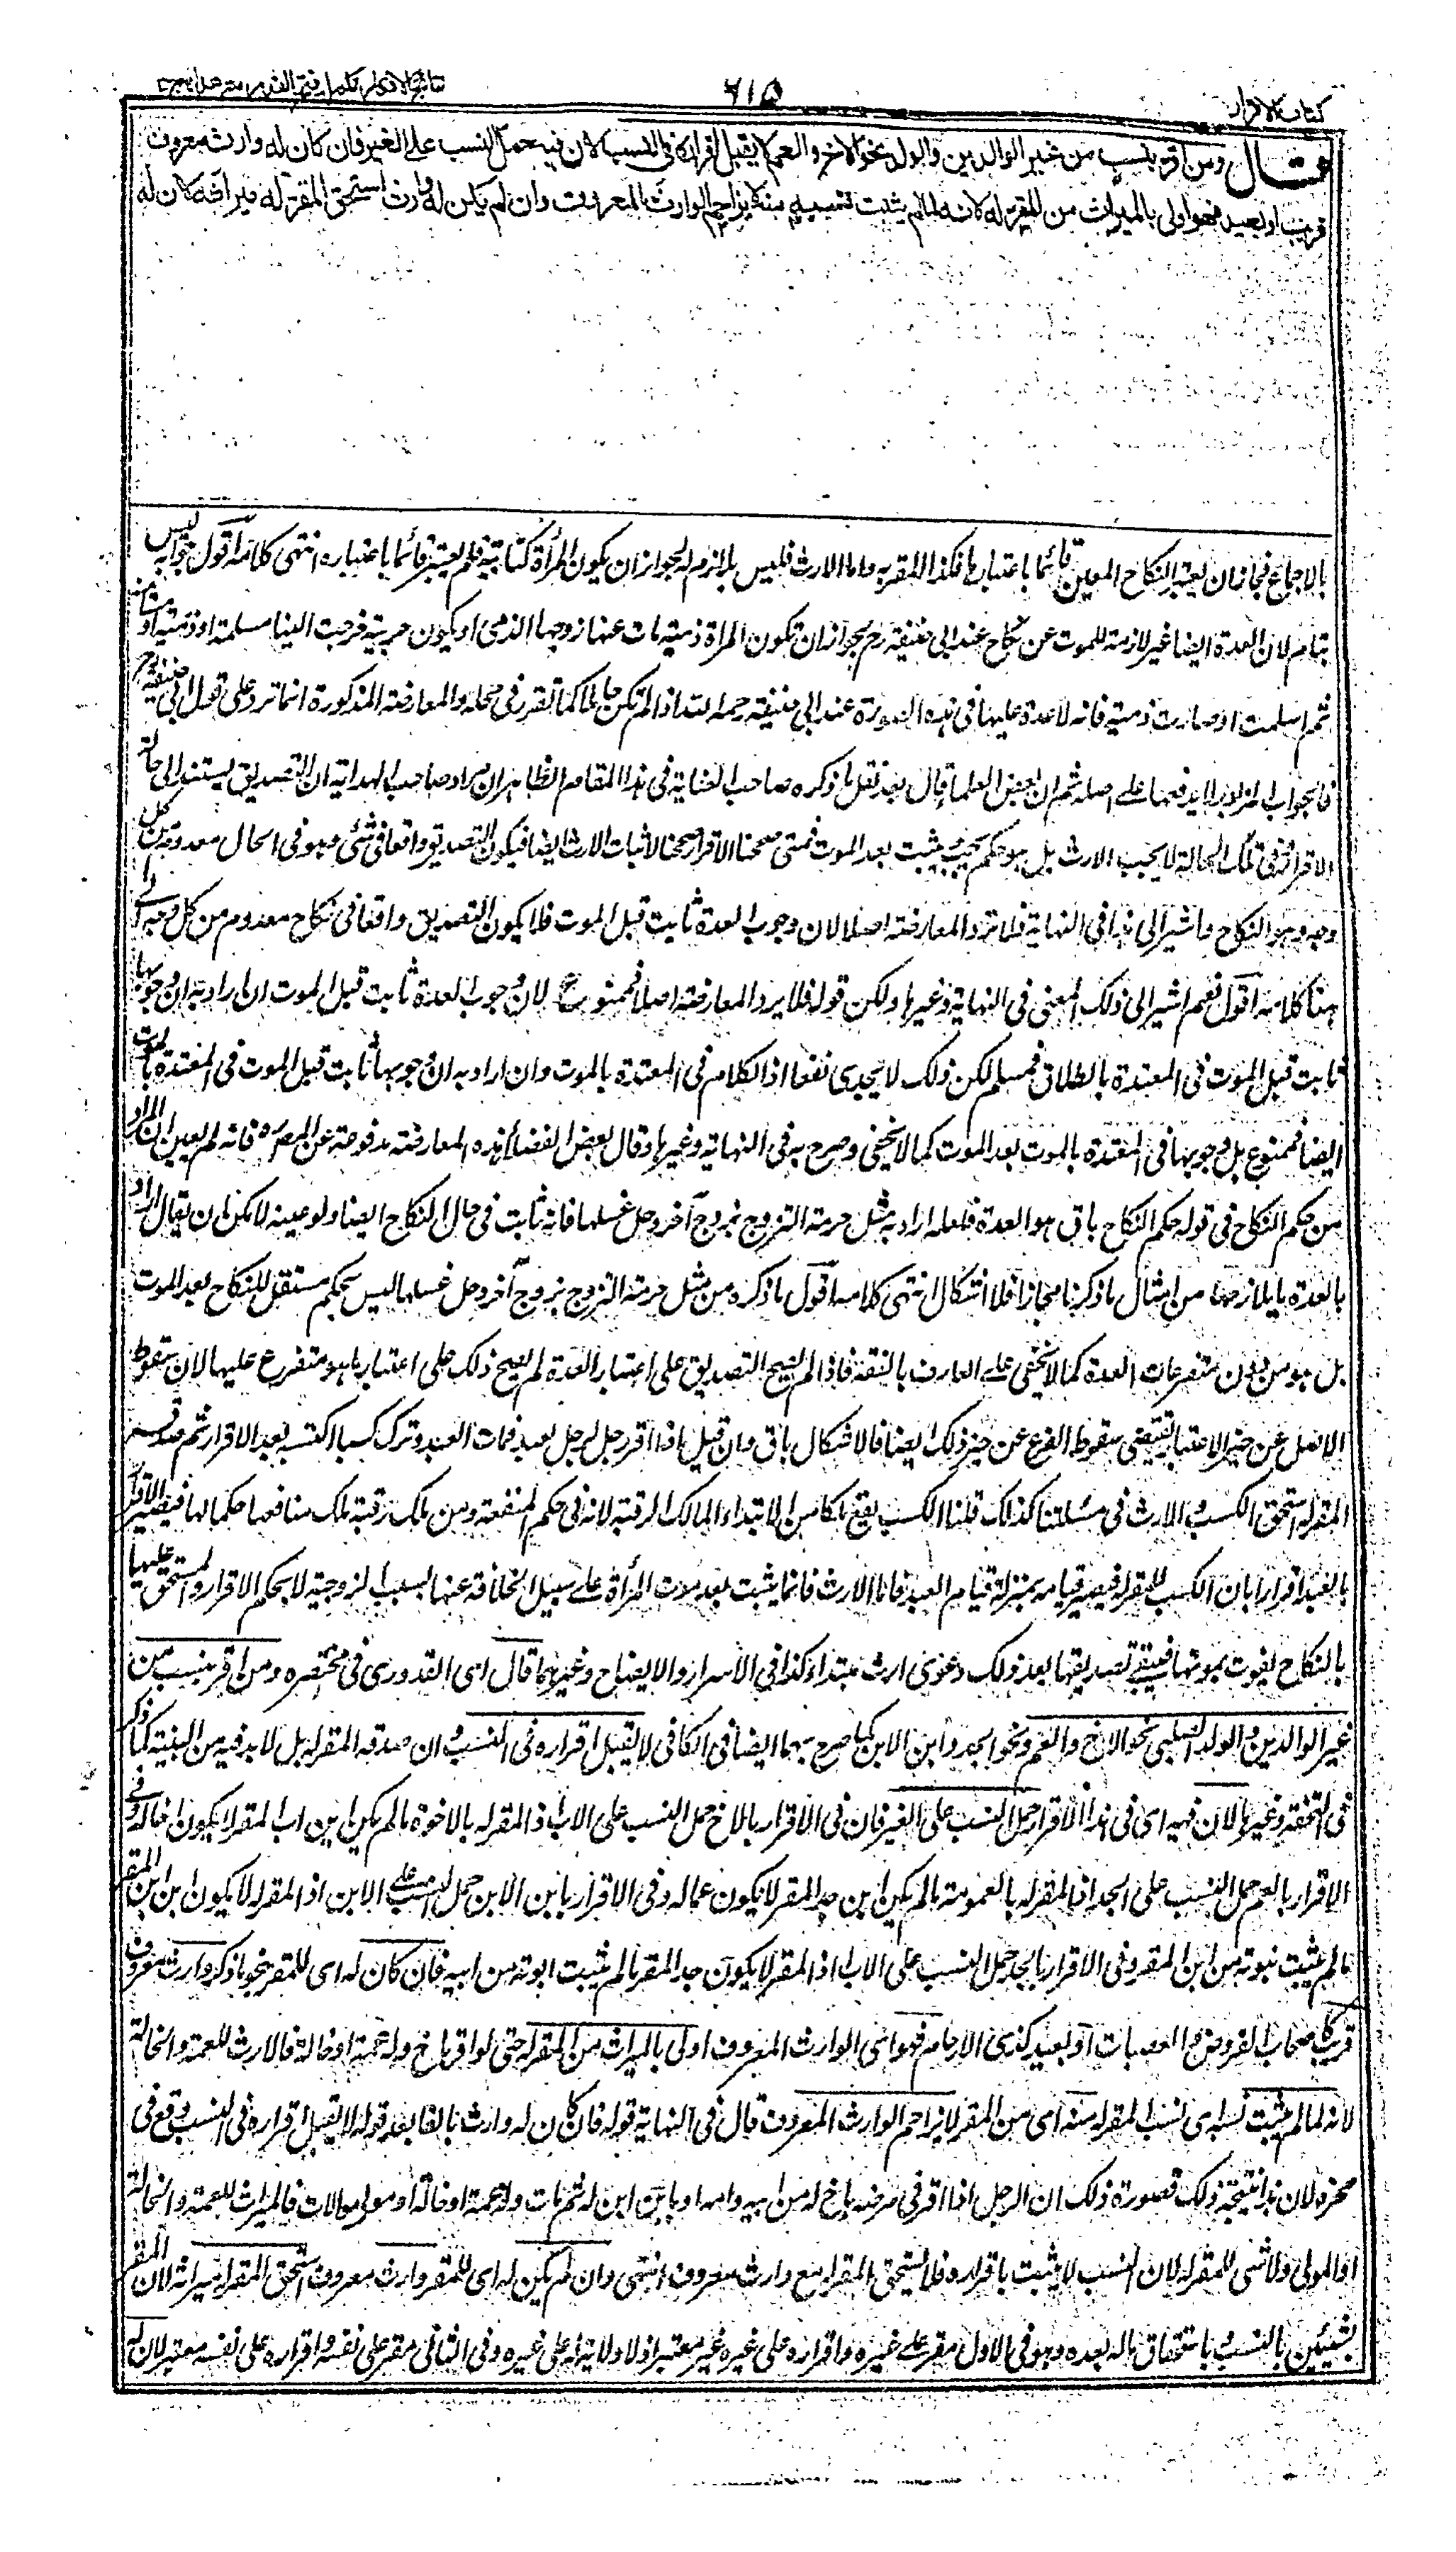 كتاب الاقرار
٦١٥
نتائج الافكار تكملة فتح القدير مع هداية
قال ومن اقر بنسب من غير الوالدين والولد نحو الاخ والعم لا يقبل اقراره في النسب لان فيه حمل النسب على الغير فان كان له وارث معروف
قريب او بعيد فهو اولى بالميراث من المقر له لانه لما لم يثبت نسبه منه لا يزاحم الوارث المعروف وان لم يكن له وارث استحق المقر له ميراثه لان له
بالاجماع فجاز ان يعتبر النكاح المعين قائما باعتبارها فكذا المقر به واما الارث فليس بلازم له لجواز ان يكون المرأة كتابية فلم يعتبر قائما باعتباره انتهى كلامه اقول جوابه ليس
بتام لان العدة ايضا غير لازمة للموت عن نكاح عند ابى حنيفة رح لجواز ان تكون المراة ذمية مات عنها زوجها الذمى او يكون حربية خرجت الينا مسلمة او ذمية او مستامنة
ثم اسلمت او صارت ذمية فانه لا عدة عليها فى هذه الصورة عند ابى حنيفة رحمه الله اذا لم تكن حاملا كما تقرر فى محله والمعارضة المذكورة انما ترد على قول ابى حنيفة رح
فالجواب المزبور لا يدفعها على اصله ثم ان بعض العلما قال بعد نقل ما ذكره صاحب العناية فى هذا المقام الظاهر ان مراد صاحب الهداية ان التصديق يستند الى حالة
الاقرار وفى تلك الحالة لا يجب الارث بل هو حكم يجب يثبت بعد الموت فمتى صححنا الاقرار صححنا لاثبات الارث ايضا فيكون التصديق واقعا فى شئى وهو فى الحال معدوم من كل
وجه وهو النكاح واشير الى هذا فى النهاية فلا ترد المعارضة اصلا لان وجوب العدة ثابت قبل الموت فلا يكون التصديق واقعا فى نكاح معدوم من كل وجه الى
هنا كلامه اقول نعم اشير الى ذلك المعنى فى النهاية وغيرها ولكن قوله فلا يرد المعارضة اصلا ممنوع لان وجوب العدة ثابت قبل الموت ان اراد به ان وجوبها
ثابت قبل الموت فى المعتدة بالطلاق فمسلم لكن ذلك لا يجدى نفعا اذ الكلام فى المعتدة بالموت وان اراد به ان وجوبها ثابت قبل الموت فى المعتدة بالموت
ايضا فممنوع بل وجوبها فى المعتدة بالموت بعد الموت كما لا يخفى وصرح به فى النهاية وغيرها وقال بعض الفضلاء هذه المعارضة مدفوعة عن المصره فانه لم يعين ان المراد
من حكم النكاح فى قوله حكم النكاح باق هو العدة فلعله اراد به مثل حرمة التزوج بزوج آخر وحل غسلها فانه ثابت فى حال النكاح ايضا ولو عينه لامكن ان يقال اراد
بالعدة ما يلازمها من امثال ما ذكرنا مجازا فلا اشكال انتهى كلامه اقول ما ذكره من مثل حرمة التزوج بزوج آخر وحل غسلها ليس بحكم مستقل للنكاح بعد الموت
بل هو من متفرعات العدة كما لا يخفى على العارف بالفقه فاذا لم يصح التصديق على اعتبار العدة لم يصح ذلك على اعتبار ما هو متفرع عليها لان سقوط
الاصل عن حيز الاعتبار يقتضى سقوط الفرع عن حيز ذلك ايضا فالاشكال باق وان قيل اذا اقر رجل لرجل بعبد فمات العبد وترك كسبا اكتسبه بعد الاقرار ثم صدقه
المقر له استحق الكسب والارث فى مسئلتنا كذلك قلنا الكسب يقع ملكا من الابتداء لمالك الرقبة لانه فى حكم المنفعة ومن ملك رقبة ملك منافعها حكما لها فيصير الاقرار
بالعبد اقرارا بان الكسب للمقر له فيصير قيامه بمنزلة قيام العبد فاما الارث فانما يثبت بعد موت المرأة على سبيل الخلافة عنها بسبب الزوجية لا بحكم الاقرار والمستحق عليها
بالنكاح يفوت بموتها فيبقى تصديقها بعد ذلك دعوى ارث مبتداء كذا فى الاسرار والايضاح وغيرهما قال اى القدورى فى مختصره ومن اقر بنسب من
غير الوالدين والولد الصلبى نحو الاخ والعم ونحو الجد وابن الابن كما صرح بهما ايضا فى الكافى لا يقبل اقراره فى النسب وان صدقه المقر له بل لا بد فيه من البينة كما ذكر
فى التحفة وغيرها لان فيه اى فى هذا الاقرار حمل النسب على الغير فان فى الاقرار بالاخ حمل النسب على الاب اذ المقر له بالاخوة ما لم يكن ابن اب المقر لا يكون اخا له وفى
الاقرار بالعم حمل النسب على الجد اذ المقر له بالعمومة ما لم يكن ابن جد المقر لا يكون عما له وفى الاقرار بابن الابن حمل النسب على الابن اذ المقر له لا يكون ابن ابن المقر
ما لم يثبت بنوته من ابن المقر وفى الاقرار بالجد حمل النسب على الاب اذ المقر لا يكون جد المقر ما لم يثبت ابوته من ابيه فان كان له اى للمقر بنحو ما ذكر وارث معروف
قريب كاصحاب الفروض والعصبات او بعيد كذى الارحام فهو اى الوارث المعروف اولى بالميراث من المقر له حتى لو اقر باخ وله عمة او خالة فالارث للعمة والخالة
لانه لما لم يثبت نسبه اى نسب المقر له منه اى من المقر لا يزاحم الوارث المعروف قال فى النهاية قوله فان كان له وارث بالفا بعد قوله لا يقبل اقراره فى النسب وقع فى
محزه لان هذا نتيجة ذلك فصورة ذلك ان الرجل اذا اقر فى مرضه باخ له من ابيه وامه او بابن ابن له ثم مات وله عمة او خالة او مولى موالات فالميراث للعمة والخالة
او المولى ولا شى للمقر له لان النسب لا يثبت باقراره فلا يستحق المقر له مع وارث معروف انتهى وان لم يكن له اى للمقر وارث معروف استحق المقر له ميراثه لان المقر
بشيئين بالنسب وباستحقاق ماله بعده وهو فى الاول مقر على غيره واقراره على غيره غير معتبر اذ لا ولاية له على غيره وفى الثانى مقر على نفسه واقراره على نفسه معتبر لان له